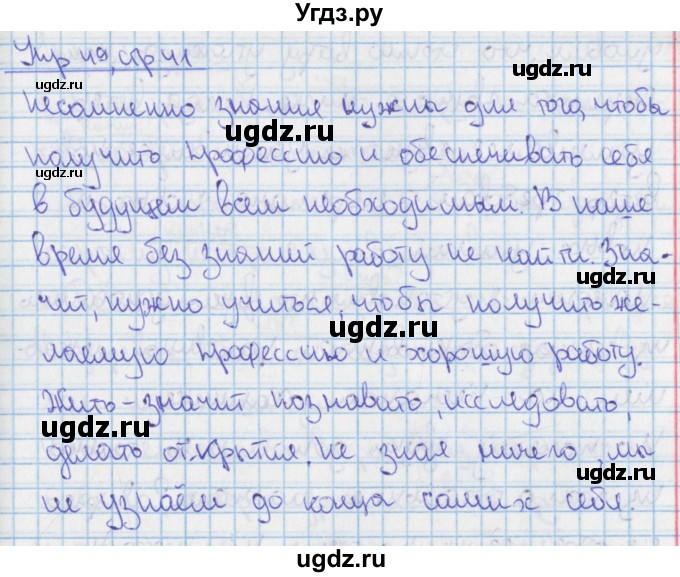 Угдз.ру
Упр 49, стр 41
ugdz.ru
несомненно знания нужны для того, чтобы
ugdz.ru ugdz.ru
получить профессию и обеспечивать себя
ugdz.ru
в будущем всем необходимым. В наше
ugdz.ru
время без знаний работу не найти. Зна-
ugdz.ru
чит, нужно учиться, чтобы получить же-
ugdz.ru
лаемую профессию и хорошую работу.
ugdz.ru
Жить - значит познавать, исследовать,
ugdz.ru
делать открытия. Не зная ничего, мы
ugdz.ru
не узнаём до конца самих себя.
ugdz.ru